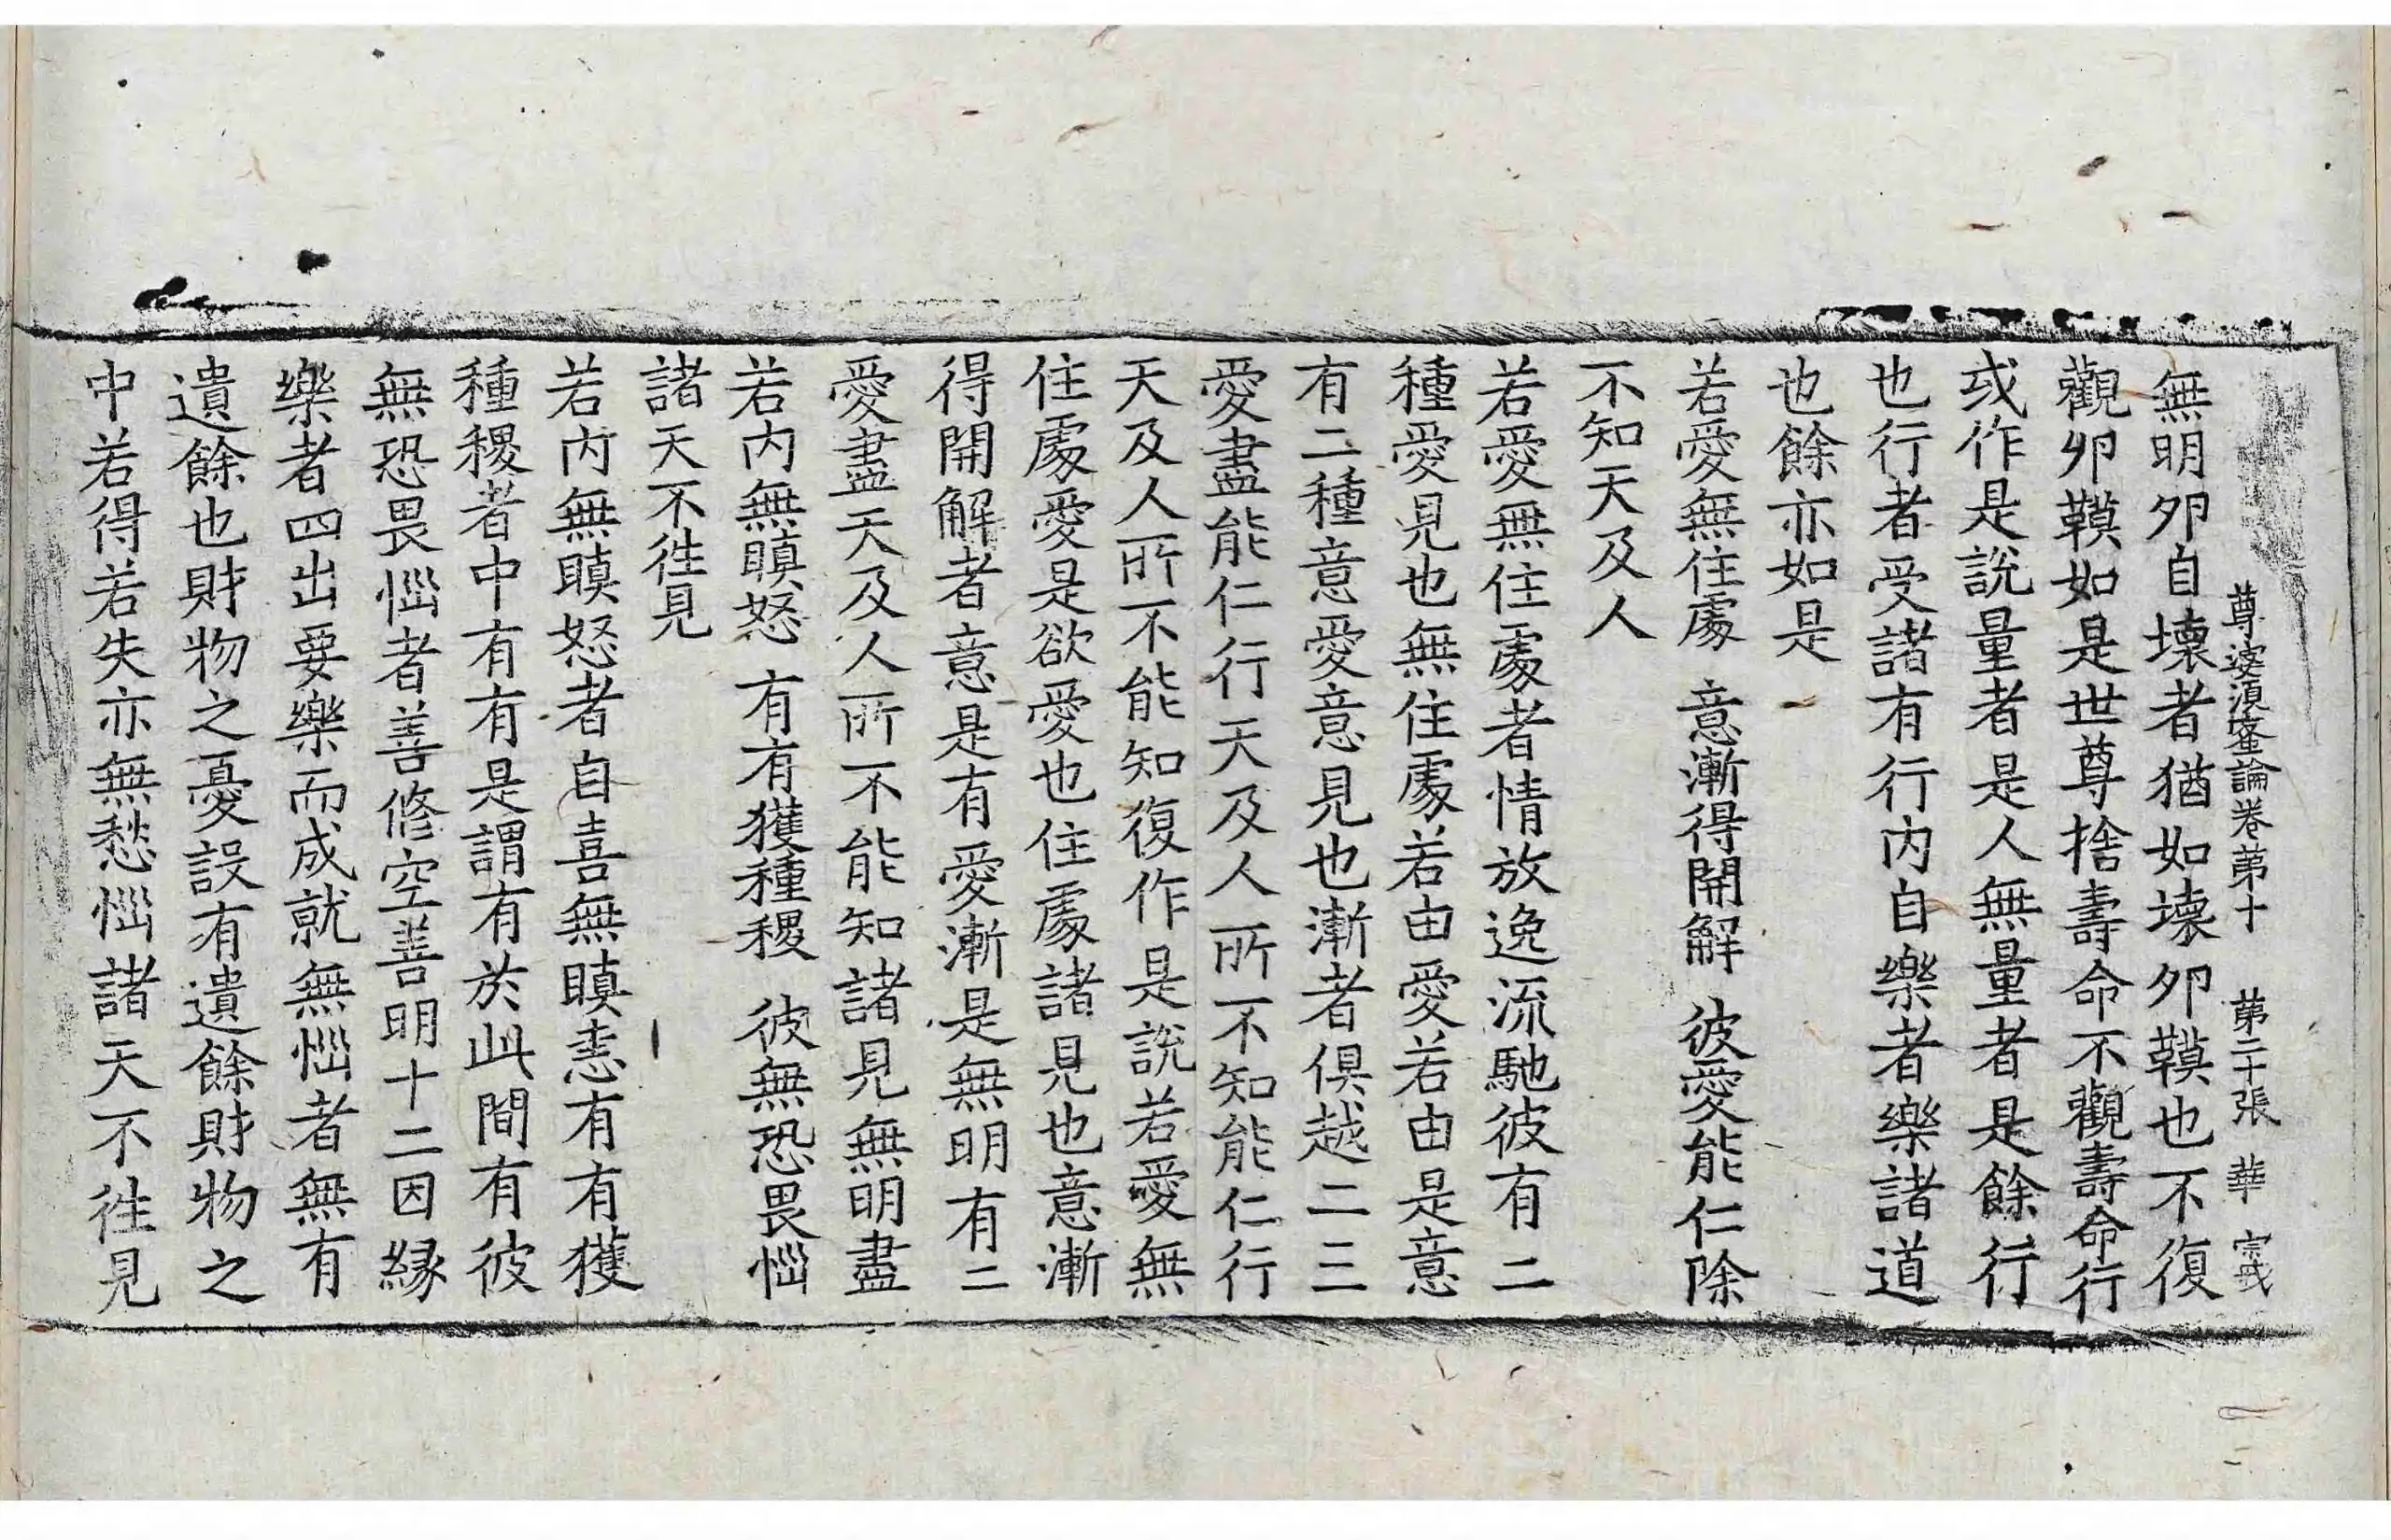 尊婆須蜜論卷苐十 苐二十張 華 宗戎
無明卵自壞者猶如壞卵鞕也不復
觀卵鞕如是世尊捨壽命不觀壽命行
或作是說量者是人無量者是餘行
也行者受諸有行內自樂者樂諸道
也餘亦如是
若愛無住處 意漸得開解 彼愛能仁除
不知天及人
若愛無住處者情放逸流馳彼有二
種愛見也無住處若由愛若由是意
有二種意愛意見也漸者俱越二三
愛盡能仁行天及人所不知能仁行
天及人所不能知復作是說若愛無
住處愛是欲愛也住處諸見也意漸
得開解者意是有愛漸是無明有二
愛盡天及人所不能知諸見無明盡
若內無瞋怒 有有獲種稷 彼無恐畏惱
諸天不徃見
若內無瞋怒者自喜無瞋恚有有獲
種稷者中有有是謂有於此間有彼
無恐畏惱者善修空善明十二因緣
樂者四出要樂而成就無惱者無有
遺餘也財物之憂設有遺餘財物之
中若得若失亦無愁惱諸天不徃見